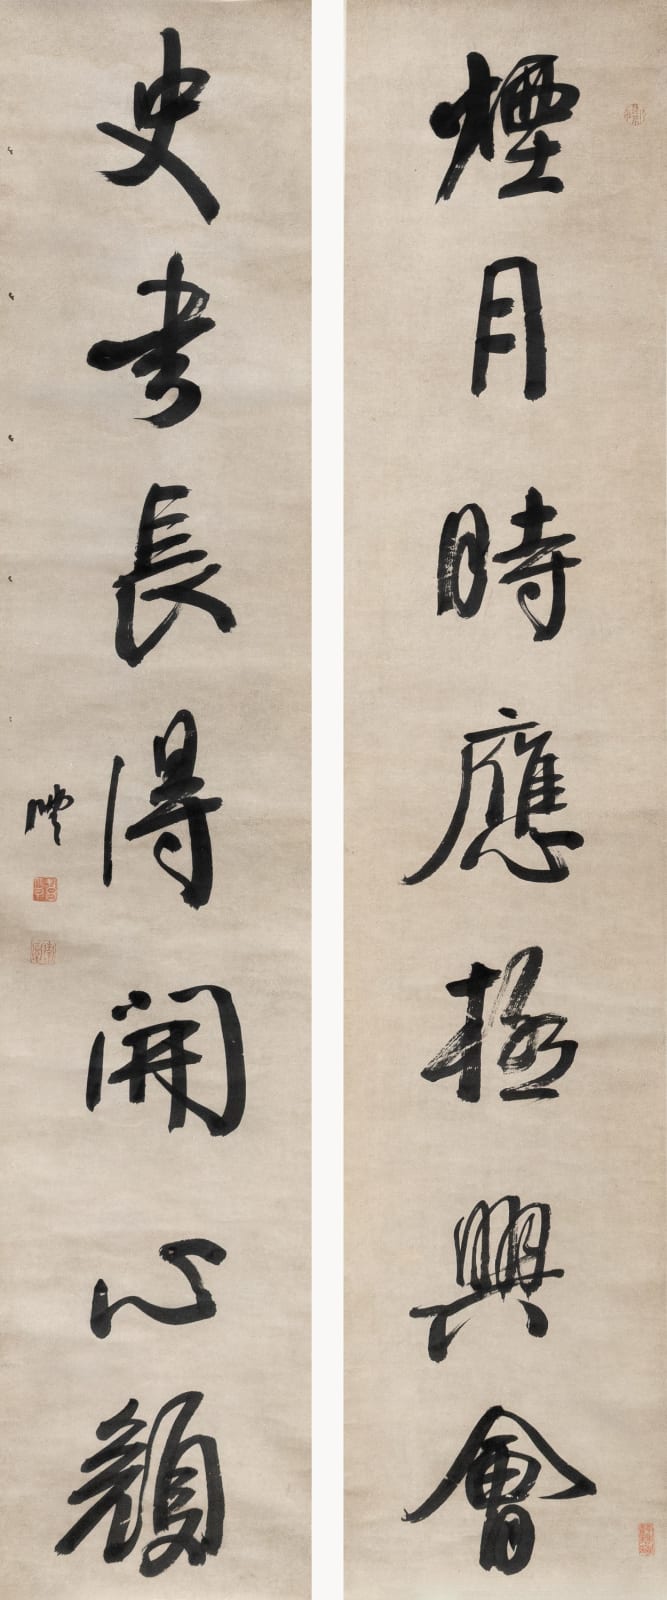 煙月時應極興會
史書長得開心顏